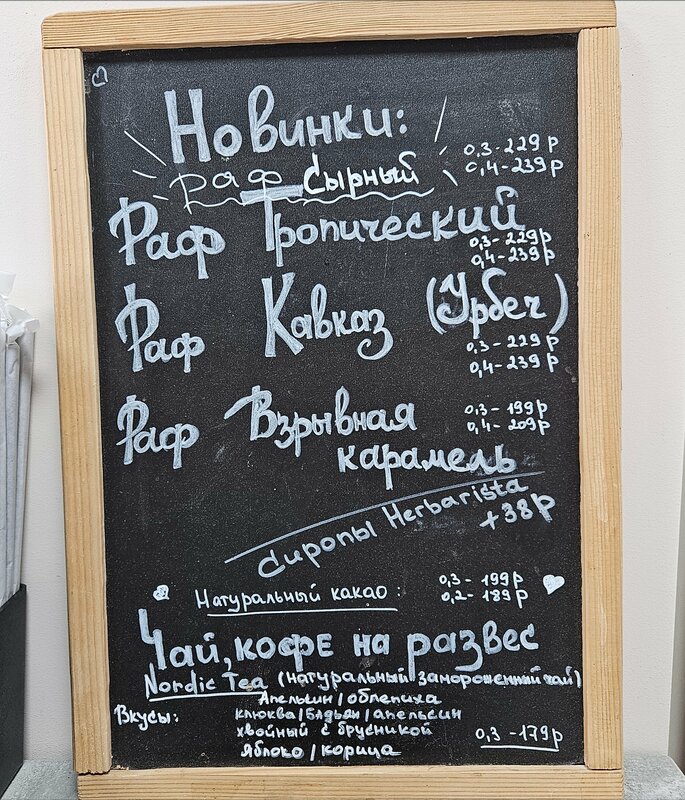 Новинки:
раф Сырный 0,3-229р
0,4-239р
Раф Тропический
0,3-229р
0,4-239р
Раф Кавказ (Урбеч)
0,3-229р
0,4-239р
Раф Взрывная 0,3-199р
0,4-209р
карамель
Сиропы Herbarista
+38р
Натуральный какао: 0,3-199р
0,2-189р
Чай, кофе на развес
Nordic Tea (натуральный замороженный чай)
Вкусы: Апельсин/облепиха
клюква/бадьян/апельсин
хвойный с брусникой
яблоко/корица 0,3-179р